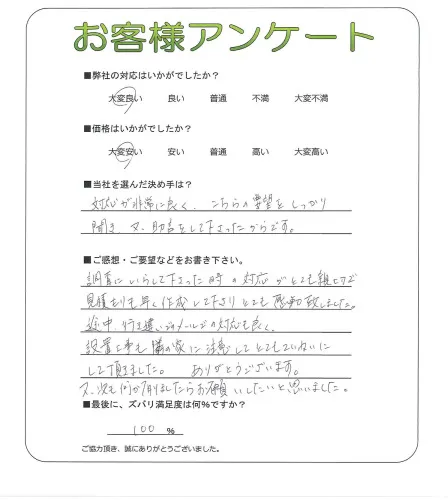 お客様アンケート
■弊社の対応はいかがでしたか？
大変良い 良い 普通 不満 大変不満
■価格はいかがでしたか？
大変安い 安い 普通 高い 大変高い
■当社を選んだ決め手は？
対応が非常に良く、こちらの要望をしっかり
聞き 又、助言をして下さったからです。
■ご感想・ご要望などをお書き下さい。
調査にいらして下さった時の対応がとても親切で
見積もりも早く作成して下さりとても感動致しました。
途中、行き違いのメールの対応も良く、
設置工事も隣の家に注意してとてもていねいに
して頂きました。 ありがとうございます。
又、次も何か有りましたらお願いしたいと思いました。
■最後に、ズバリ満足度は何%ですか？
100 %
ご協力頂き、誠にありがとうございました。